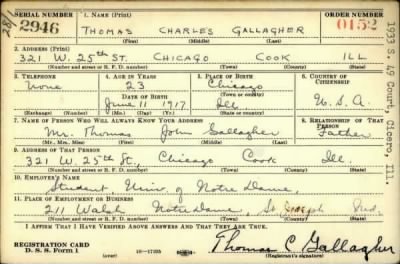 SERIAL NUMBER 1. NAME (Print) ORDER NUMBER
281
2946 THOMAS CHARLES GALLAGHER 0152
(First) (Middle) (Last)
2. ADDRESS (Print)
321 W. 25th ST. CHICAGO COOK ILL
(Number and street or R. F. D. number) (Town) (County) (State)
3. TELEPHONE 4. AGE IN YEARS 5. PLACE OF BIRTH 6. COUNTRY OF CITIZENSHIP
None 23 Chicago
DATE OF BIRTH (Town or county)
June 11 1917 Ill U.S.A.
(Exchange) (Number) (Mo.) (Day) (Yr.) (State or country)
7. NAME OF PERSON WHO WILL ALWAYS KNOW YOUR ADDRESS 8. RELATIONSHIP OF THAT PERSON
Mr. Thomas John Gallagher Father
(Mr., Mrs., Miss) (First) (Middle) (Last)
9. ADDRESS OF THAT PERSON
321 W. 25th St, Chicago Cook Ill.
(Number and street or R. F. D. number) (Town) (County) (State)
10. EMPLOYER'S NAME
Student, Univ. of Notre Dame,
11. PLACE OF EMPLOYMENT OR BUSINESS
211 Walsh Notre Dame, St Joseph Ind.
(Number and street or R. F. D. number) (Town) (County) (State)
I AFFIRM THAT I HAVE VERIFIED ABOVE ANSWERS AND THAT THEY ARE TRUE.
REGISTRATION CARD
D. S. S. Form 1 16-17105 Thomas C Gallagher
(Registrant's signature)
1933 S. 49 Court, Cicero, Ill.